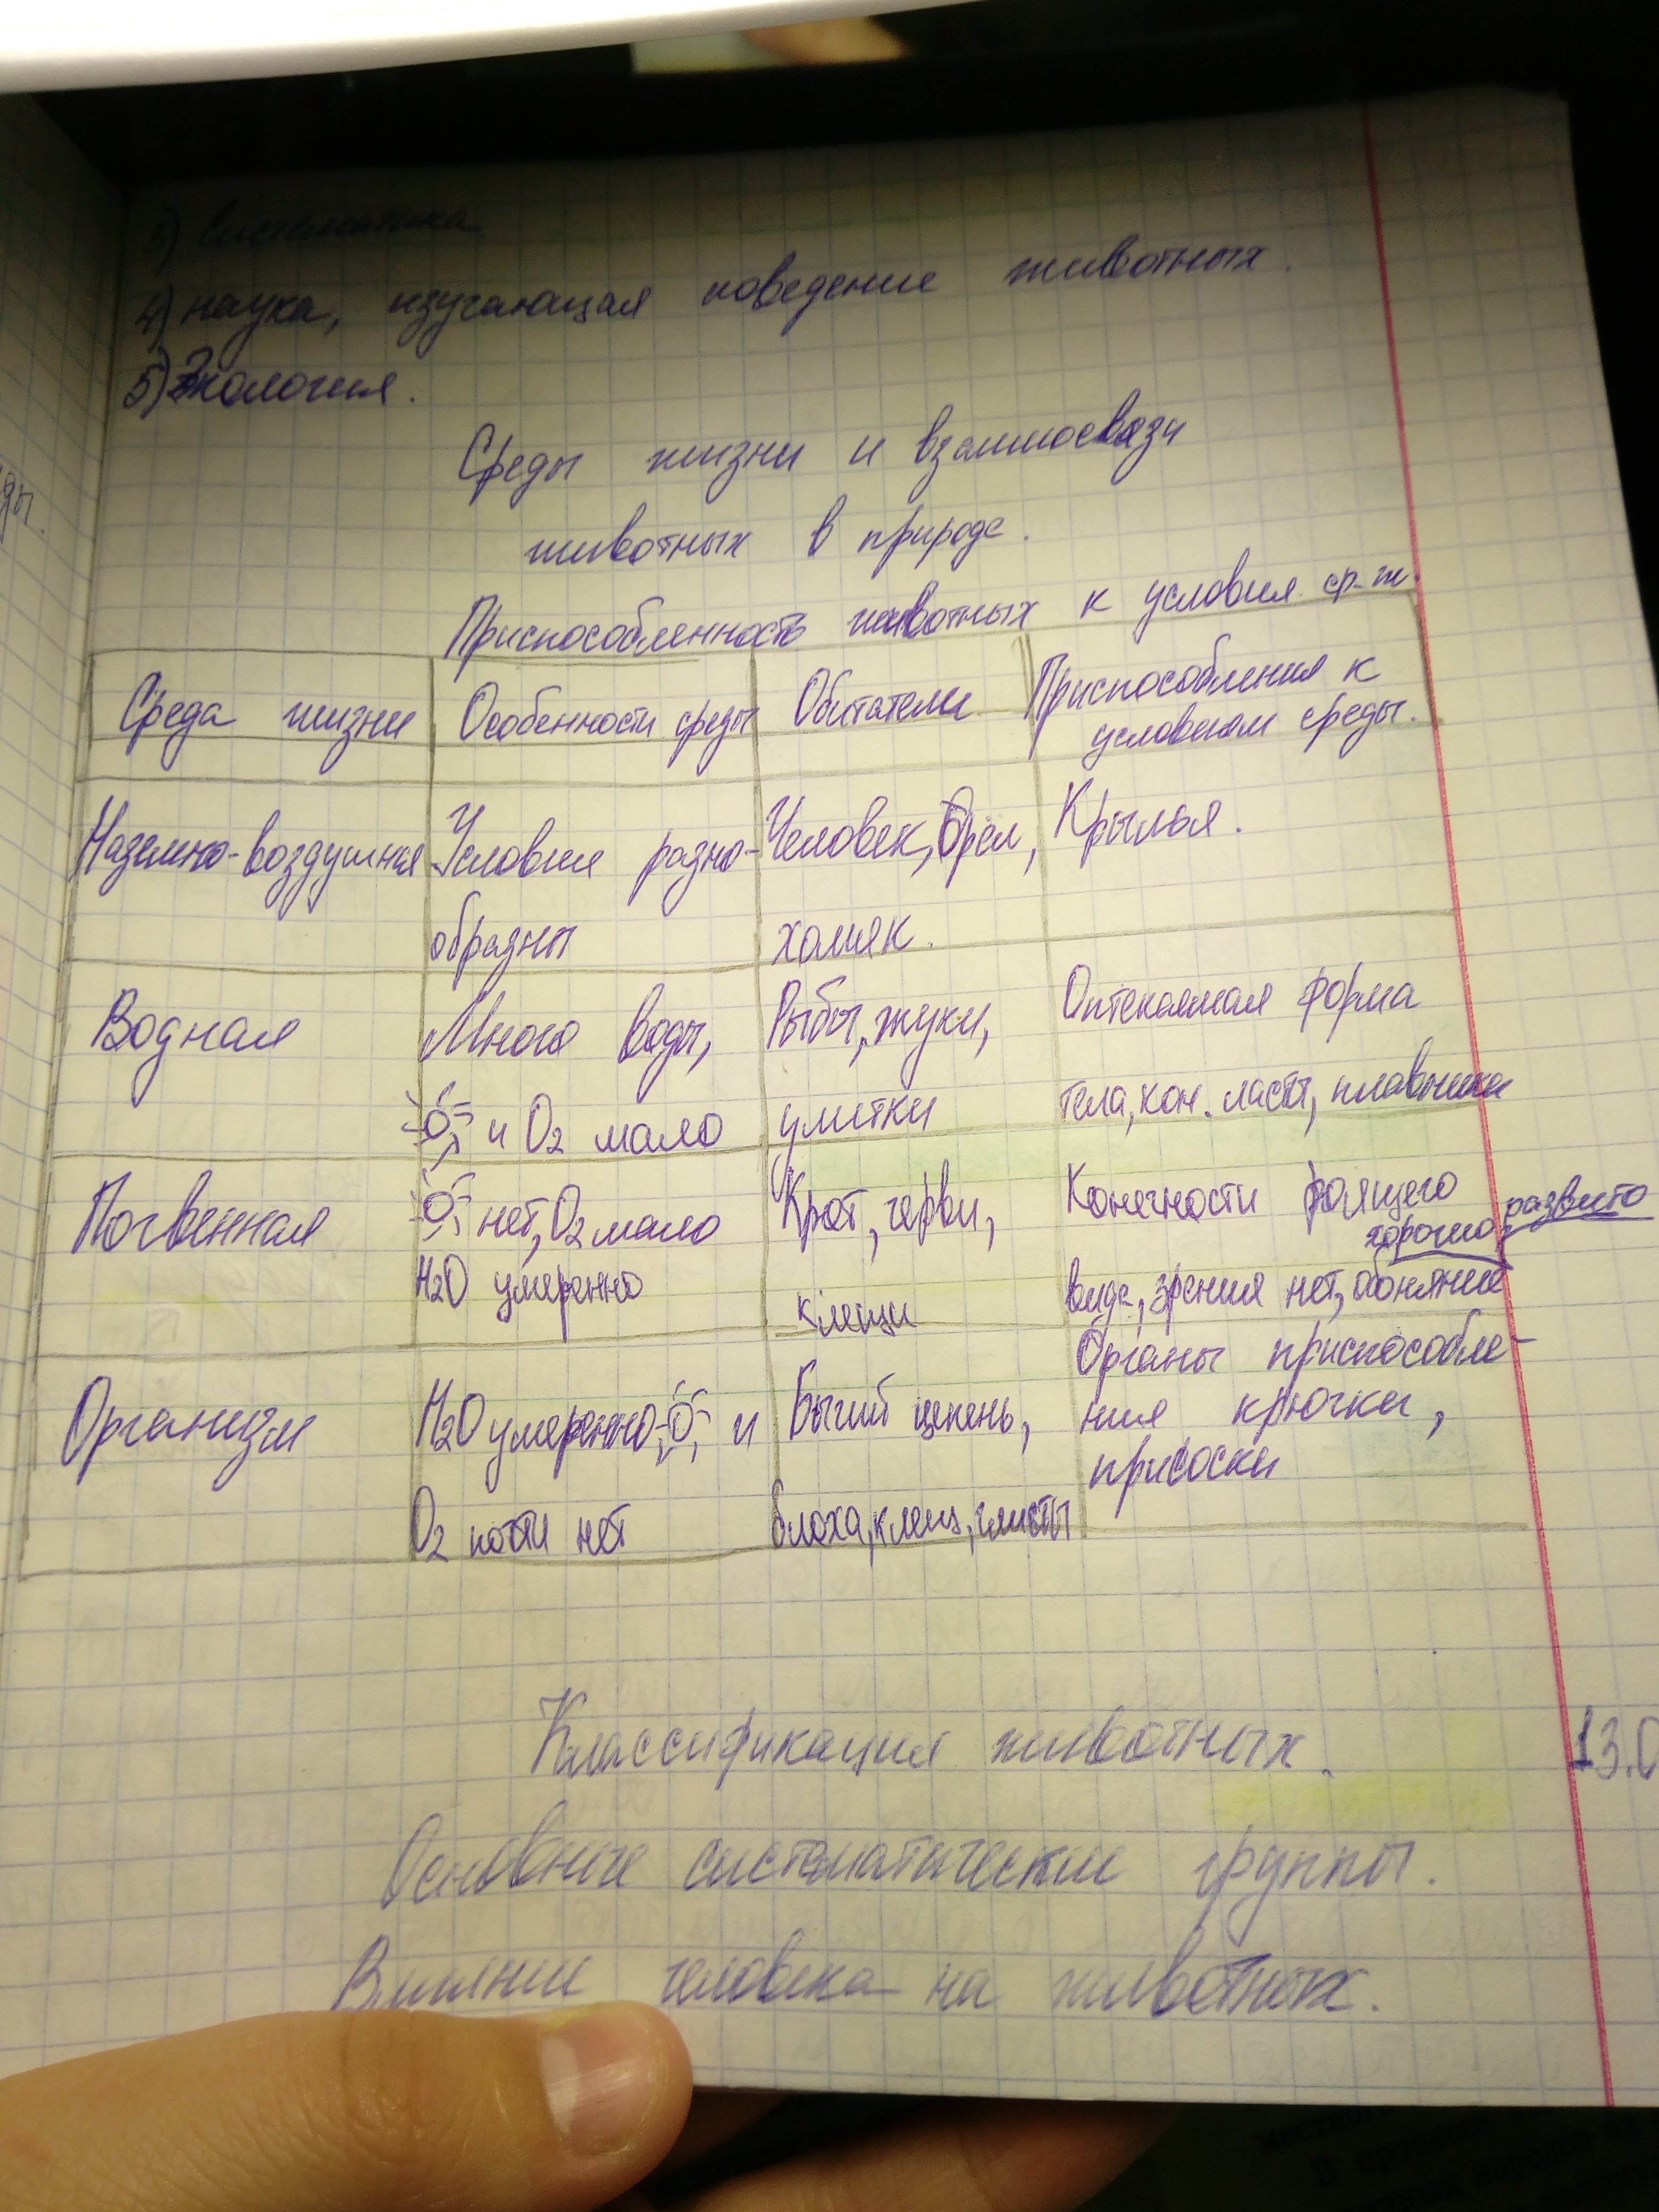 3) Систематика
4) наука, изучающая поведение животных.
5) Экология.
Среды жизни и взаимосвязи
животных в природе.
Приспособленность животных к условия ср-ж.
Среда жизни Особенности среды Обитатели Приспособления к
условиям среды.
Наземно-воздушная Условия разно- Человек, Орел, Крылья.
образны хомяк.
Водная Много воды, Рыбы, жуки, Оптекаемая форма
и O2 мало улитки тела, кон. ласты, плавники
Почвенная нет, O2 мало Крот, черви, Конечности роящего
хорошо развито
H2O умеренно клещи виде, зрения нет, обоняние
Организм H2O умеренно, и Бычий цепень, Органы приспособле-
ния крючки,
присоски
O2 почти нет блоха, клещ, глисты
Классификация животных.
13.0
Основные систематические группы.
Влияние человека на животных.
ды.